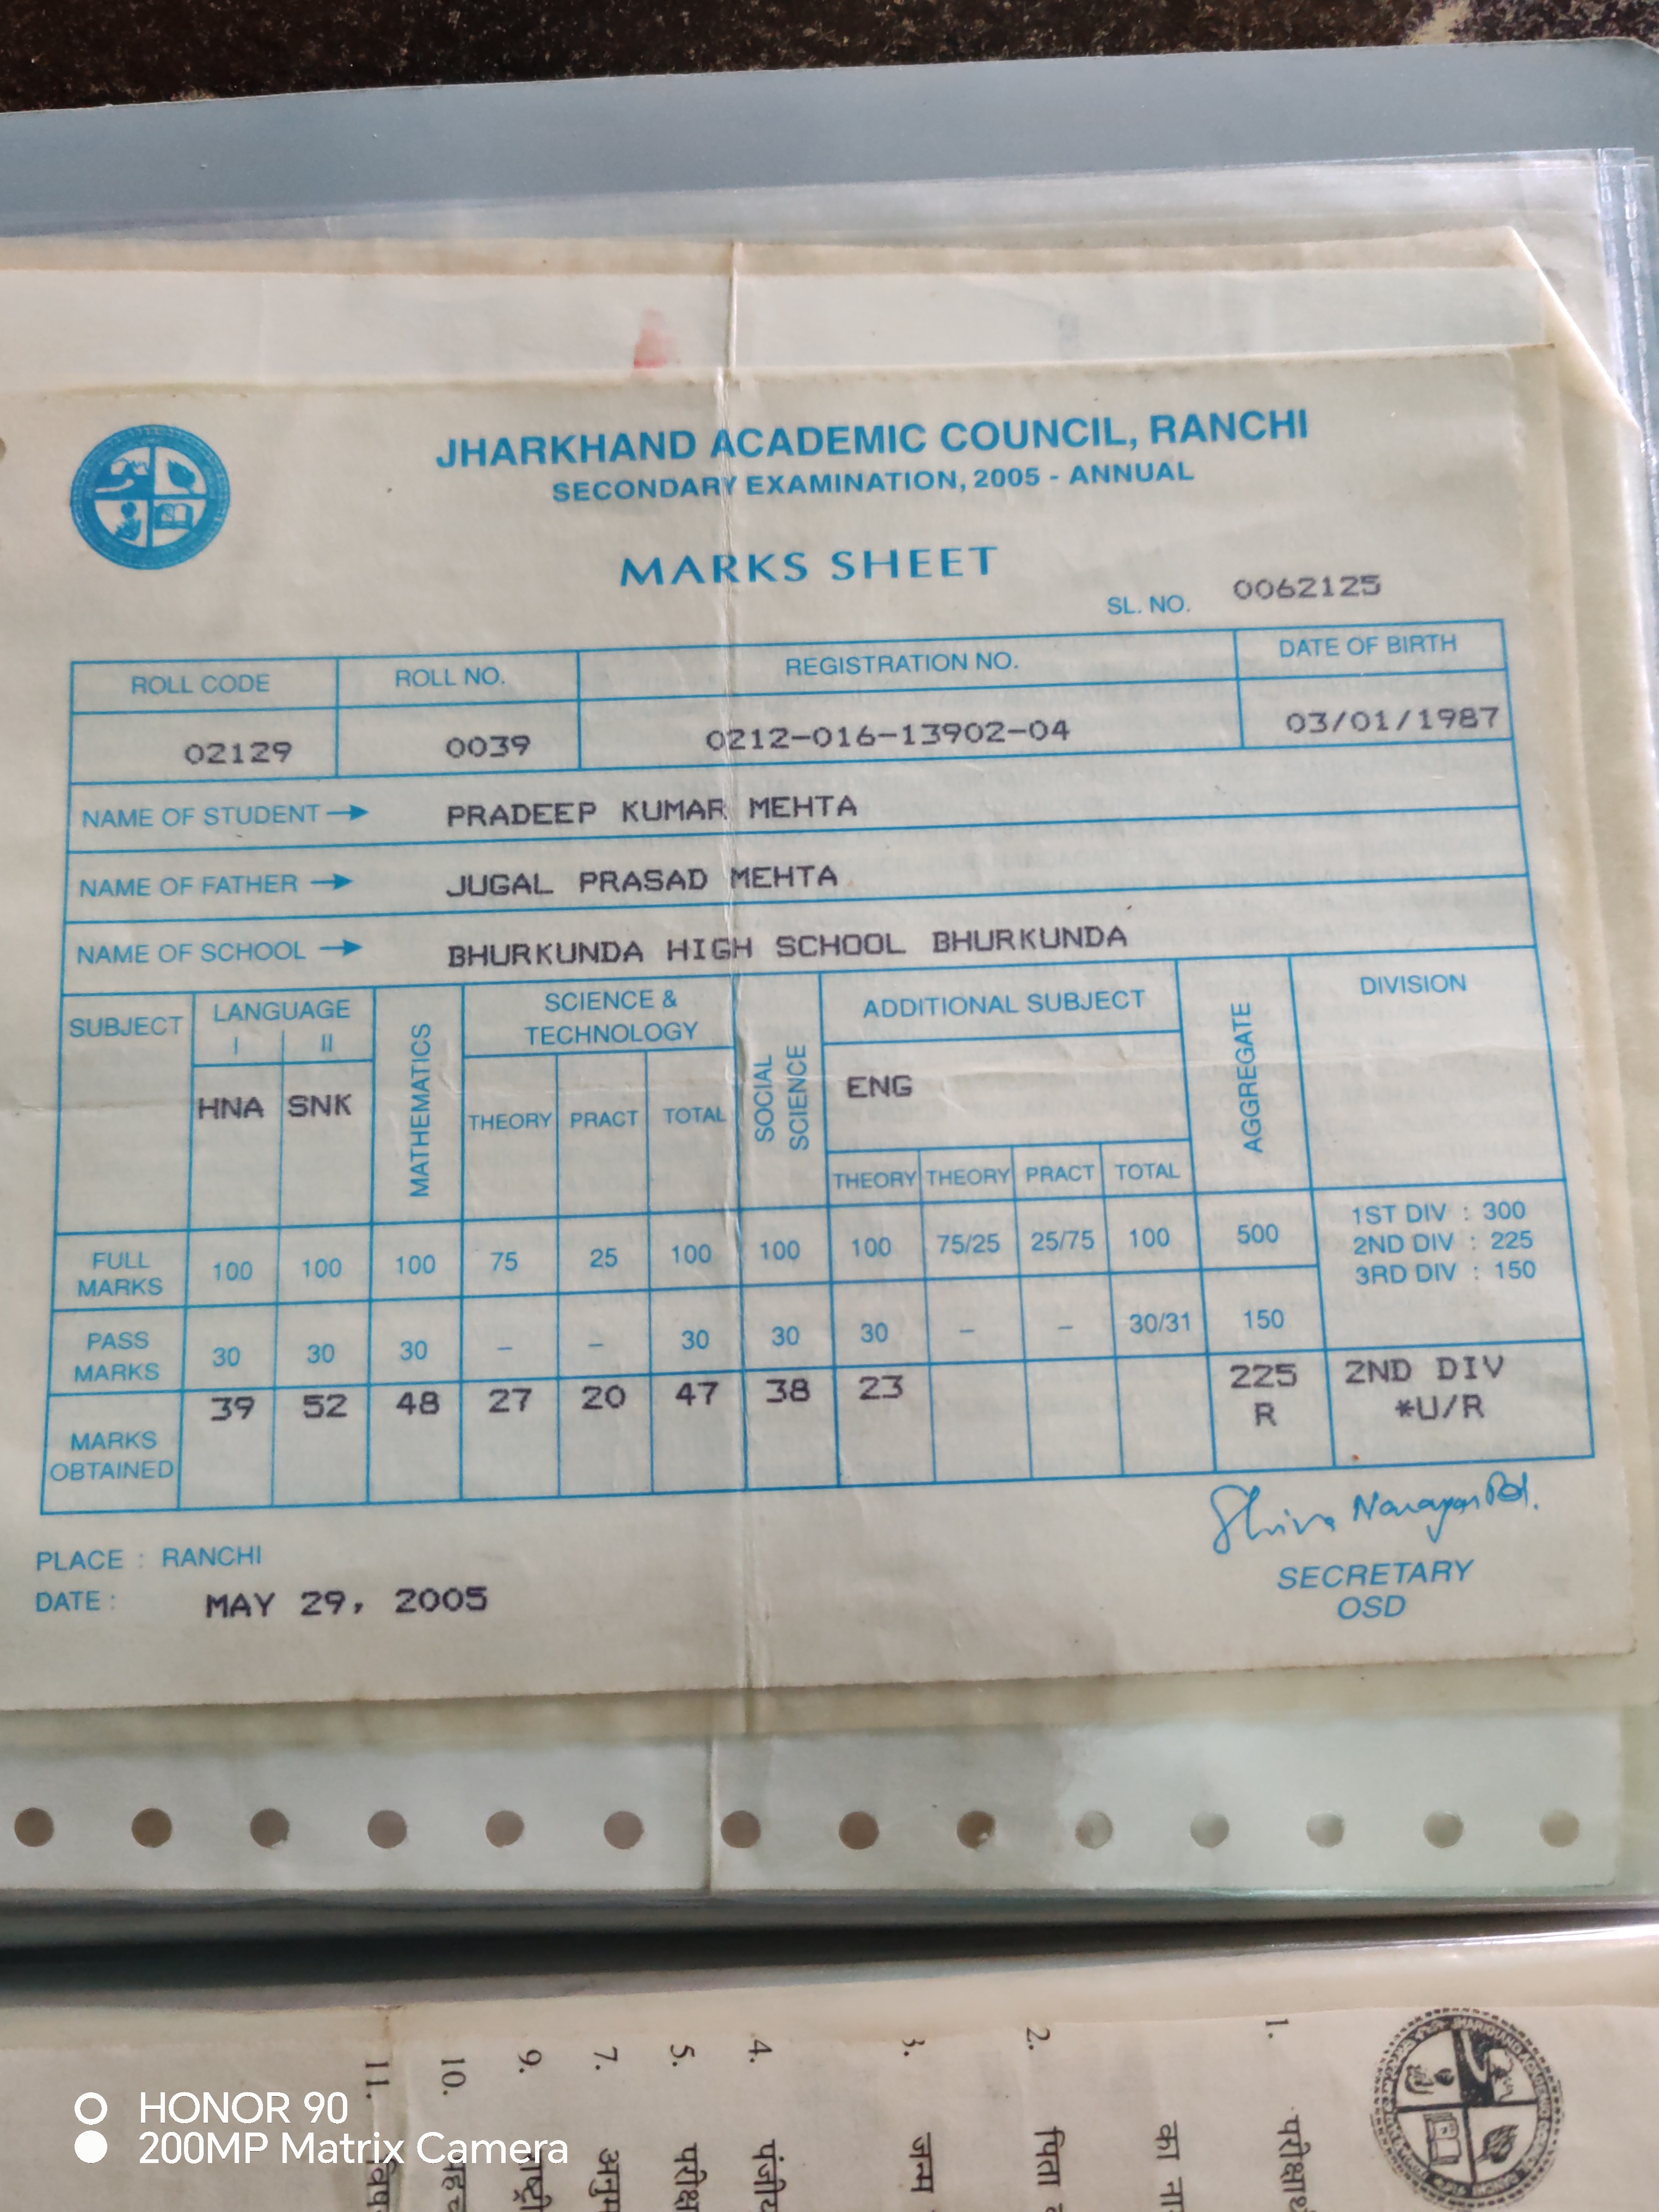 JHARKHAND ACADEMIC COUNCIL, RANCHI
SECONDARY EXAMINATION, 2005 - ANNUAL
MARKS SHEET
SL. NO. 0062125
ROLL CODE ROLL NO. REGISTRATION NO. DATE OF BIRTH
02129 0039 0212-016-13902-04 03/01/1987
NAME OF STUDENT → PRADEEP KUMAR MEHTA
NAME OF FATHER → JUGAL PRASAD MEHTA
NAME OF SCHOOL → BHURKUNDA HIGH SCHOOL BHURKUNDA
SUBJECT LANGUAGE MATHEMATICS SCIENCE & TECHNOLOGY SOCIAL SCIENCE ADDITIONAL SUBJECT AGGREGATE DIVISION
I II
HNA SNK THEORY PRACT TOTAL ENG
THEORY THEORY PRACT TOTAL
FULL MARKS 100 100 100 75 25 100 100 100 75/25 25/75 100 500 1ST DIV : 300
2ND DIV : 225
3RD DIV : 150
PASS MARKS 30 30 30 – – 30 30 30 – – 30/31 150
MARKS OBTAINED 39 52 48 27 20 47 38 23 225 2ND DIV
R *U/R
Shiva Narayan Pd.
PLACE : RANCHI
SECRETARY
DATE : MAY 29, 2005
OSD
1. परीक्षा
का ना
2. पिता
3. जन्म
4. पंजीय
5. परीक्ष
7. अनुम
9. राष्ट्री
10.
11.
HONOR 90
200MP Matrix Camera